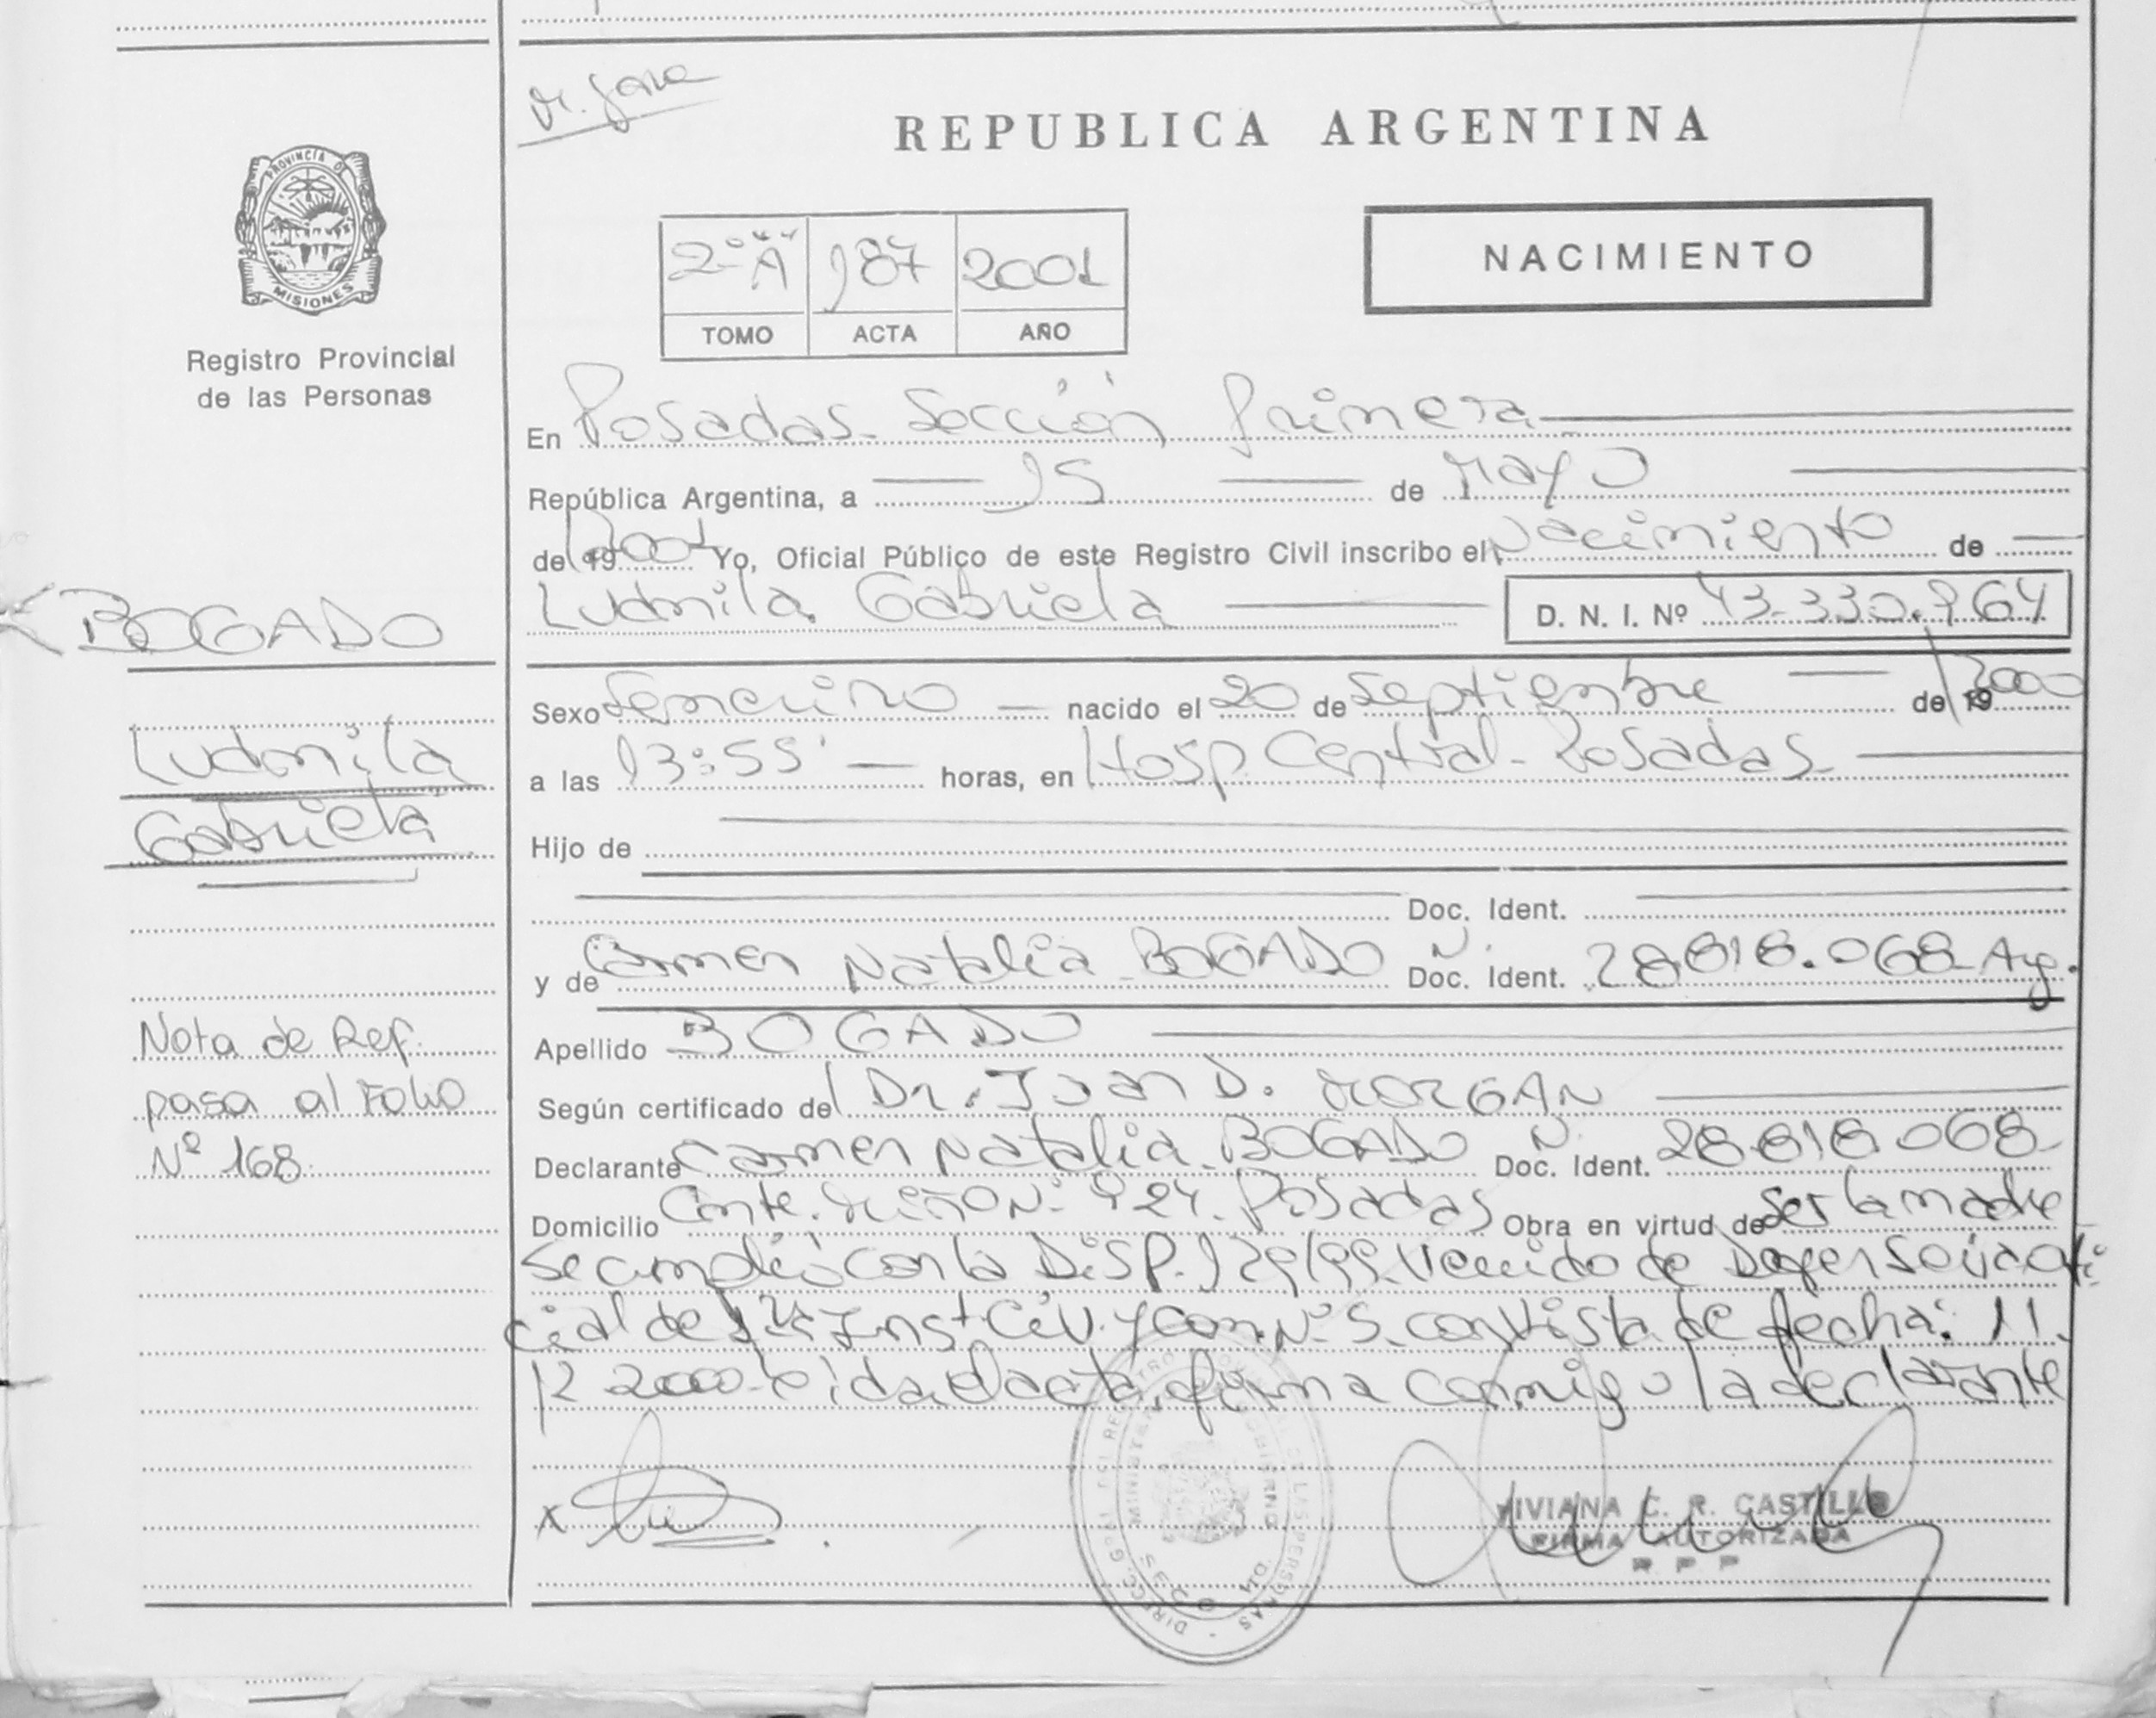 REPUBLICA ARGENTINA
PROVINCIA DE
MISIONES
Registro Provincial
de las Personas
NACIMIENTO
2º "A" 187 2001
TOMO ACTA AÑO
En Posadas Sección Primera
República Argentina, a 15 de Mayo
de 19 2001 Yo, Oficial Público de este Registro Civil inscribo el Nacimiento de
Ludmila Gabriela D. N. I. Nº 43.330.964
BOGADO
Ludmila
Gabriela
Sexo Femenino nacido el 20 de Septiembre de 19 2000
a las 13:55' horas, en Hosp. Central - Posadas
Hijo de
Doc. Ident.
y de Carmen Natalia BOGADO Doc. Ident. N. 28.818.068 Arg.
Nota de Ref.
pasa al Folio
Nº 168
Apellido BOGADO
Según certificado del Dr. Juan D. MORGAN
Declarante Carmen Natalia BOGADO Doc. Ident. N. 28.818.068
Domicilio Nº 924 Posadas Obra en virtud de ser la madre
Se cumplió con la Disp. 129/99. Venido de Defensoría Ofi
cial de 1º Inst. Civ. y Com. Nº 5 con vista de fecha: 11.
12 2000 leida el acta, firma conmigo la declarante
x
VIVIANA C. R. CASTILLO
FIRMA AUTORIZADA
R P P